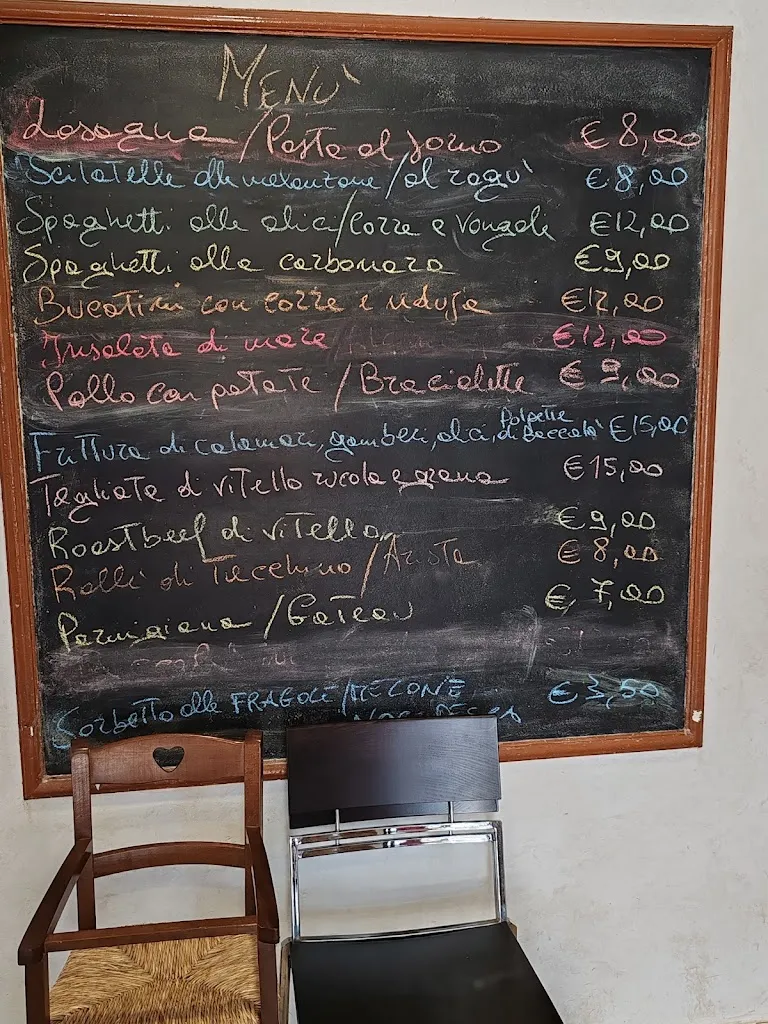 MENU'
Lasagna / Pasta al forno € 8,00
Scilatelle alle melanzane / al ragu' € 8,00
Spaghetti alle alici / Cozze e Vongole € 12,00
Spaghetti alla carbonara € 9,00
Bucatini con cozze e nduja € 12,00
Insalata di mare € 12,00
Pollo con patate / Braciolette € 9,00
Frittura di calamari, gamberi, alici, Polpette di Baccala' € 15,00
Tagliata di vitello rucola e grana € 15,00
Roastbeef di vitello € 9,00
Rollè di Tacchino / Arista € 8,00
Parmigiana / Gateau €, 7,00
Sorbetto alle FRAGOLE / MELONE € 3,50
NOCE PESCA